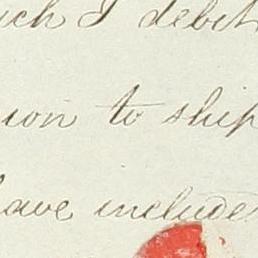 ich I debit
ion to ship
have include